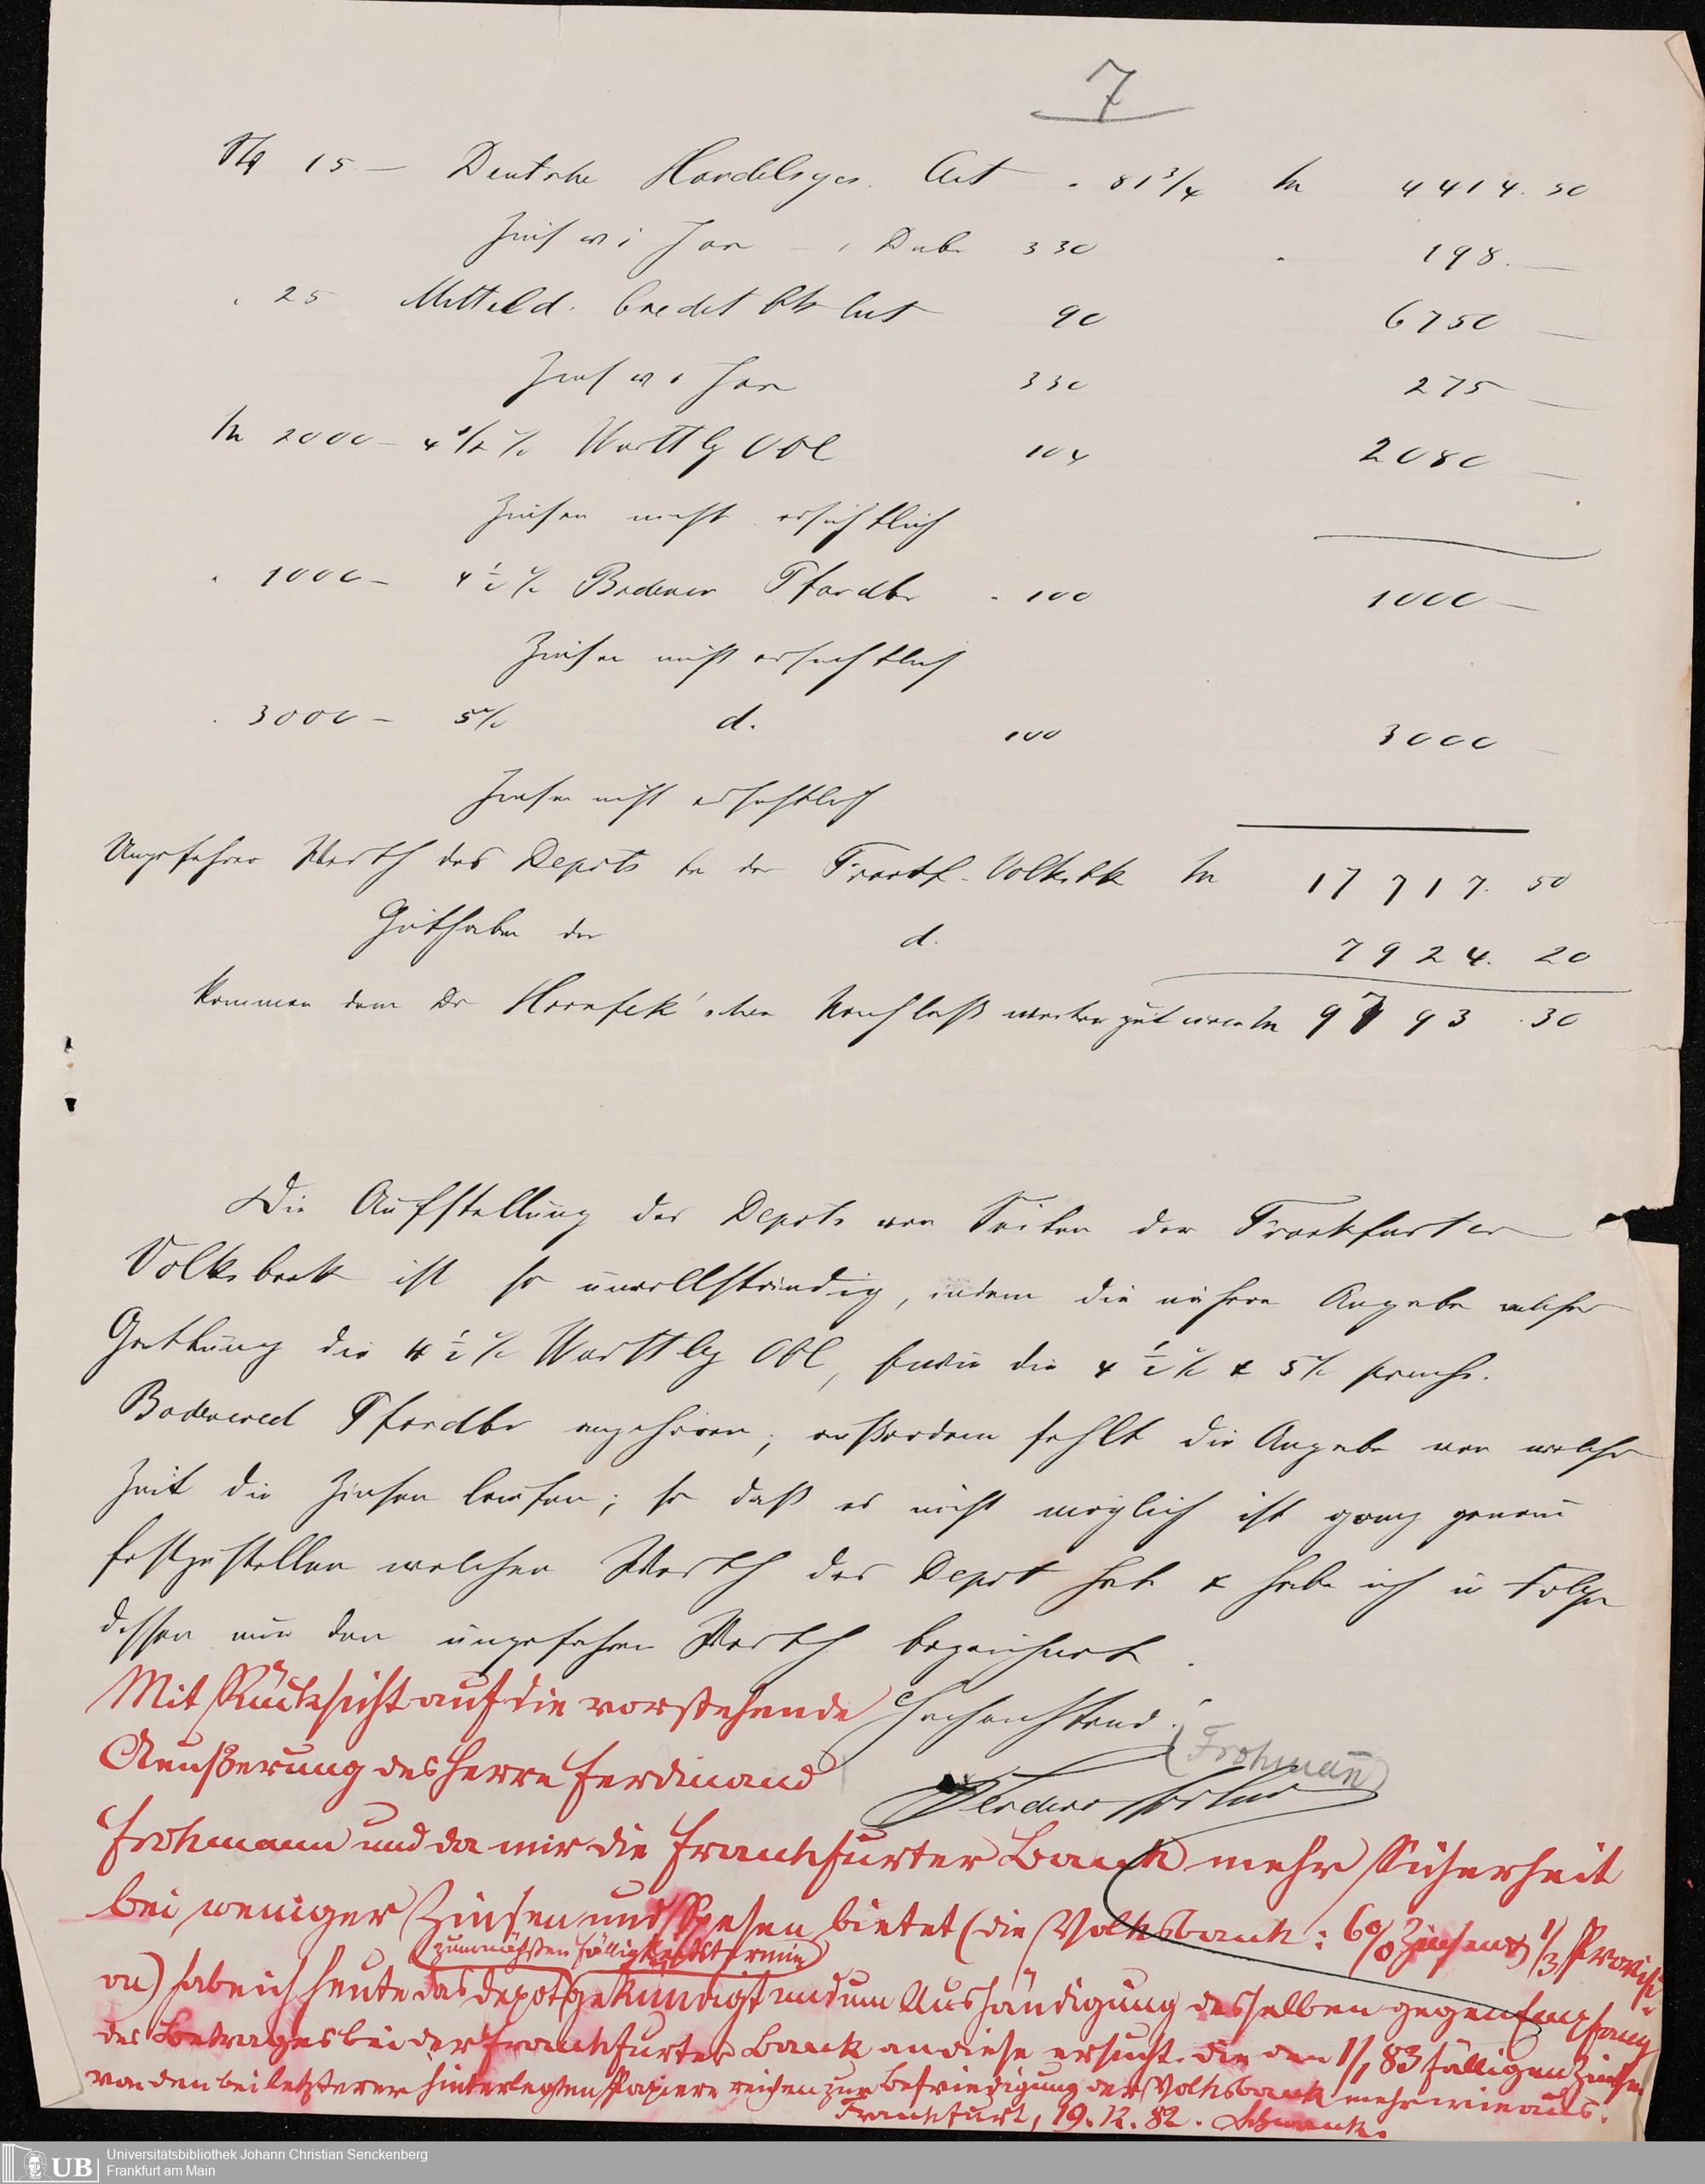 7
15 — Deutsche Handelsges. Act " 81 3/4 M 4414. 50
Zins v 1 Jan 330 " 198. —
" 25 Mitteld. Credit bk Act 90 6750 —
Zins v 1 Jan 330 275 —
M 2000 — 4 1/2 % Württbg Obl 104 2080 —
Zinsen nicht ersichtlich
" 1000 — 4 1/2 % Pfandbr " 100 1000 —
Zinsen nicht ersichtlich
" 3000 — 5 % d. 100 3000 —
Zinsen nicht ersichtlich
Ungefährer Werth des Depots bei der Frankf. Volksbk M 17 717. 50
Guthaben der d. 7924. 20
kommen dem Dr Nachlaß weiter gut circa M 9793. 30
Die Aufstellung des Depots von Seiten der Frankfurter
Volksbank ist so unvollständig, indem die nähere Angabe welcher
Gattung die 4 1/2 % Württbg Obl, sowie die 4 1/2 % & 5 %
Bodencred Pfandbr angehören; außerdem fehlt die Angabe von welcher
Zeit die Zinsen laufen; so daß es nicht möglich ist ganz genau
festzustellen welchen Werth das Depot hat & habe ich in Folge
dessen nur den ungefähren Werth bezeichnet.
Hochachtend
(Frohmann)
Mit Rücksicht auf die vorstehende
Aeußerung des Herrn Ferdinand
Frohmann und da mir die Frankfurter Bank mehr Sicherheit
bei weniger Zinsen und Spesen bietet (die Volksbank: 6% Zinsen & 1/3 Provisi-
zum nächsten Fälligkeitstermin
on) habe ich heute das Depot gekündigt und um Aushändigung desselben gegen Empfang
des Betrages bei der Frankfurter Bank an diese ersucht. Die den 1/1 83 fälligen Zinsen
von den bei letzterer hinterlegten Papiere reichen zur Befriedigung der Volksbank mehr wie aus.
Frankfurt, 19. 12. 82.
UB
Universitätsbibliothek Johann Christian Senckenberg
Frankfurt am Main